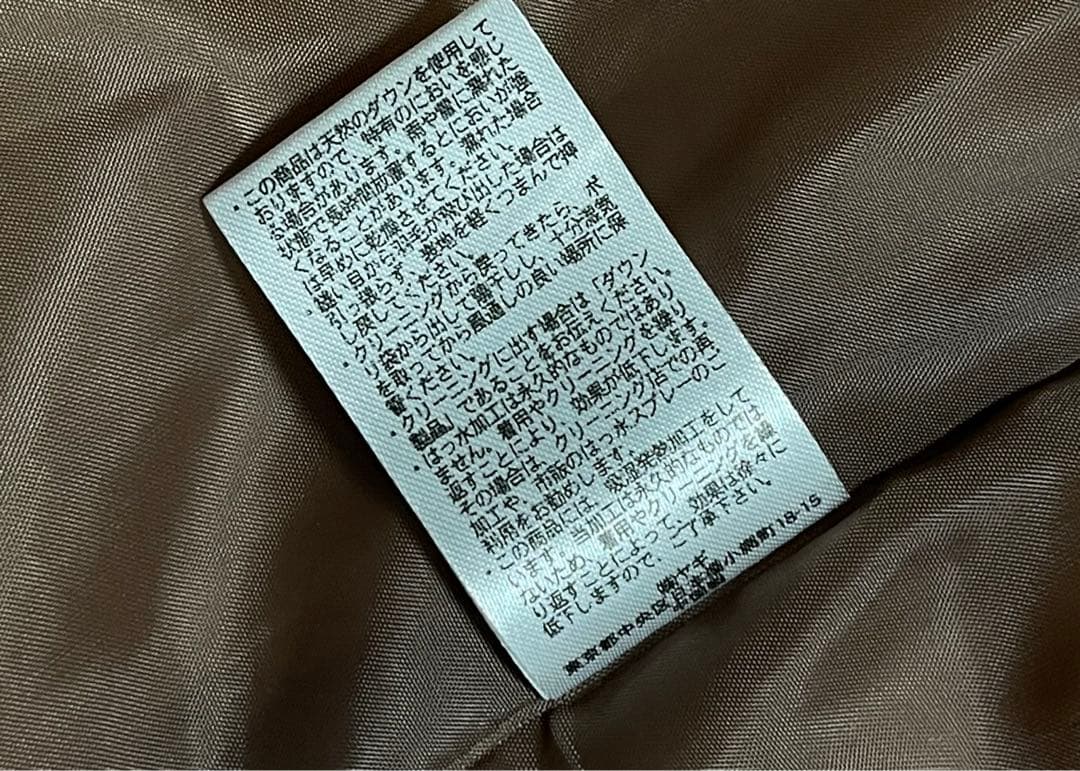 ・この商品は天然のダウンを使用して
おりますので、特有のにおいを感じ
る場合があります。雨や雪に濡れた
状態で長時間放置するとにおいが強
くなることがあります。濡れた場合
は早めに乾燥させてください。
・縫い目から羽毛が飛び出した場合は
引っ張らず、裏地を軽くつまんで押
し戻してください。
・クリーニングから戻ってきたら、ポ
リ袋から出して陰干しし、十分湿気
を取ってから風通しの良い場所に保
管ください。
・クリーニングに出す場合は「ダウン
製品」であることをお伝えください。
・はっ水加工は永久的なものではあり
ません。着用やクリーニングを繰り
返すことにより、効果が低下します。
その場合は、クリーニング店での再
加工や、市販のはっ水スプレーのご
利用をお勧めします。
・この商品には、吸湿発熱加工をして
います。当加工は永久的なものでは
ないため、着用やクリーニングを繰
り返すことによって、効果は徐々に
低下しますので、ご了承下さい。
㈱ヤギ
東京都中央区日本橋小網町18-15